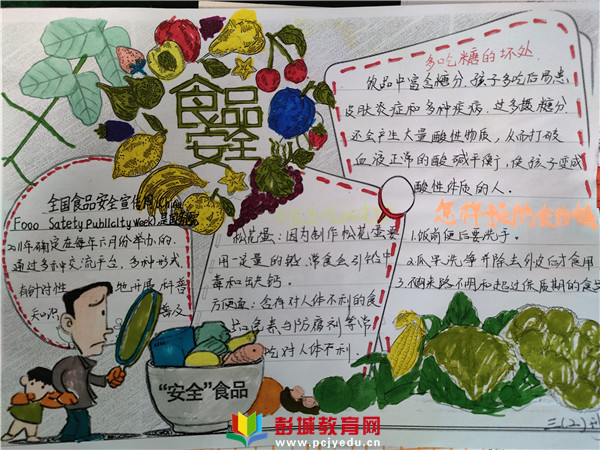 食品
安全
多吃糖的坏处
饮品中富含糖分,孩子多吃后易患
皮肤炎症和多种疾病,过多摄糖分
还会产生大量酸性物质,从而打破
血液正常的酸碱平衡,使孩子变成
酸性体质的人。
全国食品安全宣传周(China
Fooo Satety Publlclty Week)是
2011年确定在每年六月份举办的,
通过多种交流平台,多种形式,
有针对性地开展科普
知识
松花蛋:因为制作松花蛋要
用一定量的铅,常食会引铅中
毒和出缺钙。
方便面:含有对人体不利的食
色素与防腐剂等常
吃对人体不利.
怎样
1.饭前便后要洗手。
2.瓜果洗净并除去外皮后才食用
3.不購来路不明和超过保质期的食品
“安全”食品
三(2)
彭城教育网
www.pcjyedu.cn